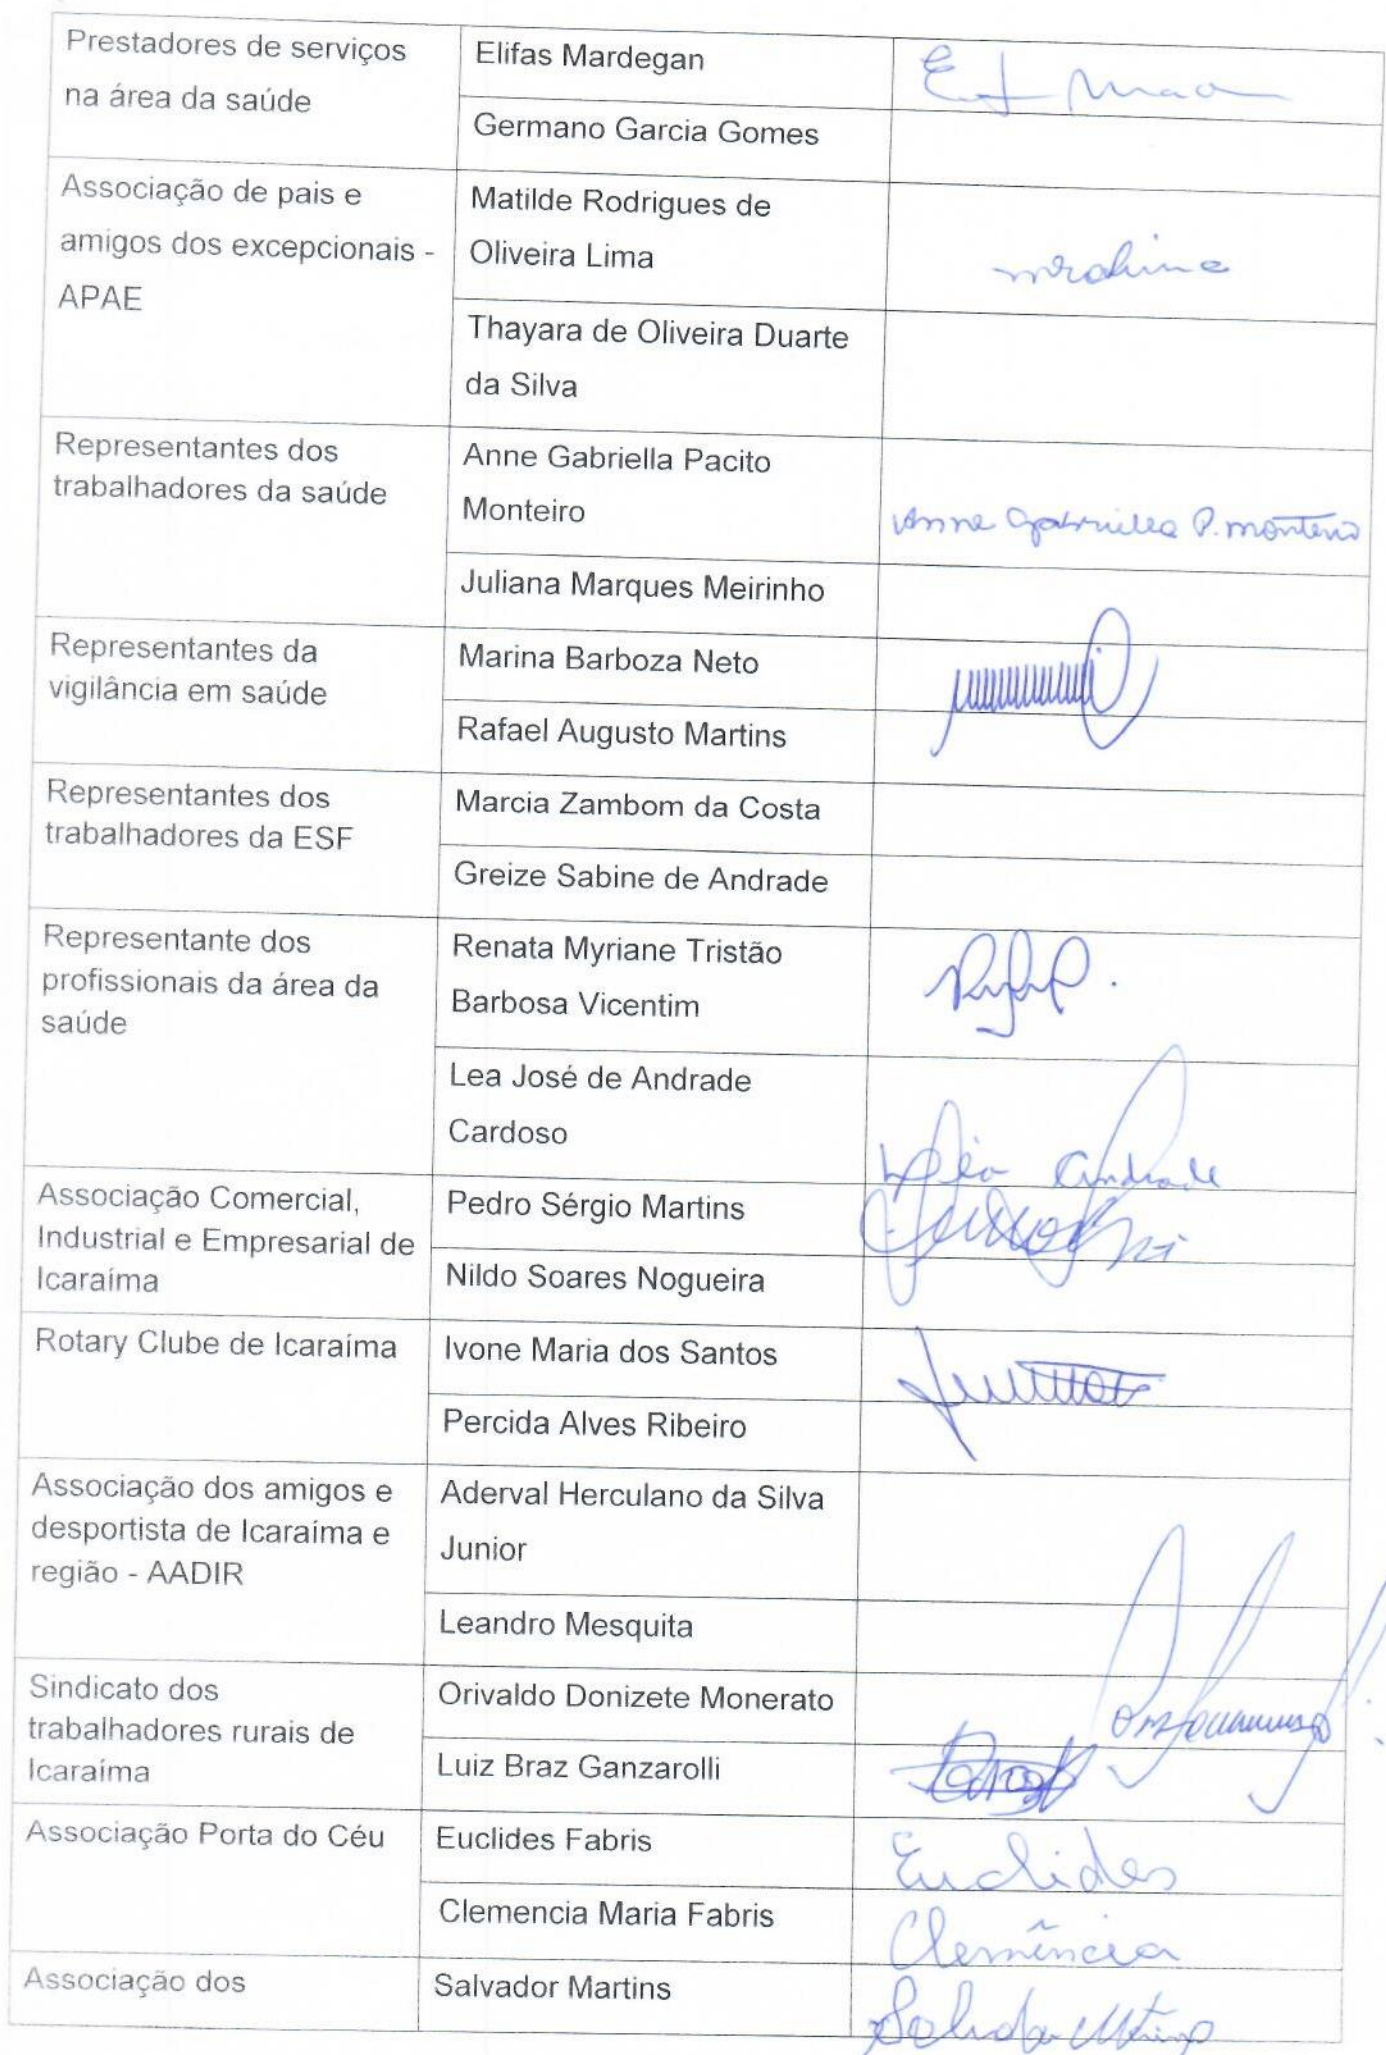 Prestadores de serviços
na área da saúde
Elifas Mardegan
Germano Garcia Gomes
Associação de pais e
amigos dos excepcionais -
APAE
Matilde Rodrigues de
Oliveira Lima
Thayara de Oliveira Duarte
da Silva
Representantes dos
trabalhadores da saúde
Anne Gabriella Pacito
Monteiro
Anne Gabriella P. monteiro
Juliana Marques Meirinho
Representantes da
vigilância em saúde
Marina Barboza Neto
Rafael Augusto Martins
Representantes dos
trabalhadores da ESF
Marcia Zambom da Costa
Greize Sabine de Andrade
Representante dos
profissionais da área da
saúde
Renata Myriane Tristão
Barbosa Vicentim
Lea José de Andrade
Cardoso
Léa Andrade
Associação Comercial,
Industrial e Empresarial de
Icaraíma
Pedro Sérgio Martins
Nildo Soares Nogueira
Rotary Clube de Icaraíma
Ivone Maria dos Santos
Percida Alves Ribeiro
Associação dos amigos e
desportista de Icaraíma e
região - AADIR
Aderval Herculano da Silva
Junior
Leandro Mesquita
Sindicato dos
trabalhadores rurais de
Icaraíma
Orivaldo Donizete Monerato
Luiz Braz Ganzarolli
Associação Porta do Céu
Euclides Fabris
Euclides
Clemencia Maria Fabris
Clemência
Associação dos
Salvador Martins